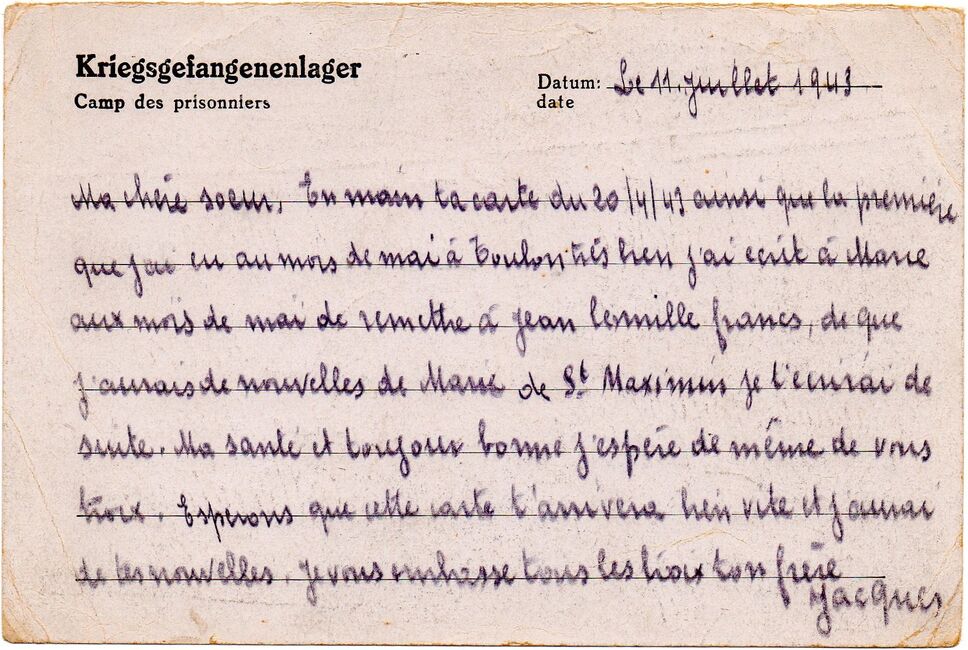 Kriegsgefangenenlager
Camp des prisonniers
Datum: Le 11. juillet 1943
date
Ma chère soeur, En main ta carte du 20/4/43 ainsi que la première
que j'ai eu au mois de mai à Toulon très bien j'ai ecrit à Marie
aux mois de mai de remettre à Jean mille francs, de que
j'aurais de nouvelles de Marie de St Maximin je t'ecrirai de
suite. Ma santé et toujour bonne j'espère de même de vous
troix. Esperons que cette carte t'arrivera bien vite et j'aurai
de tes nouvelles. Je vous embrasse tous les troix ton frère
Jacques